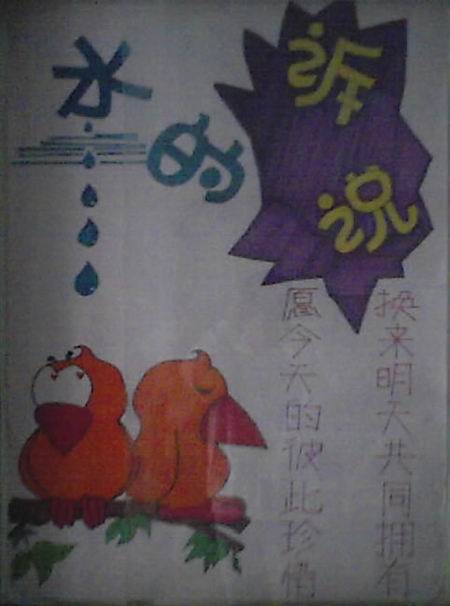 水的
诉说
愿今天的彼此珍惜
换来明天共同拥有